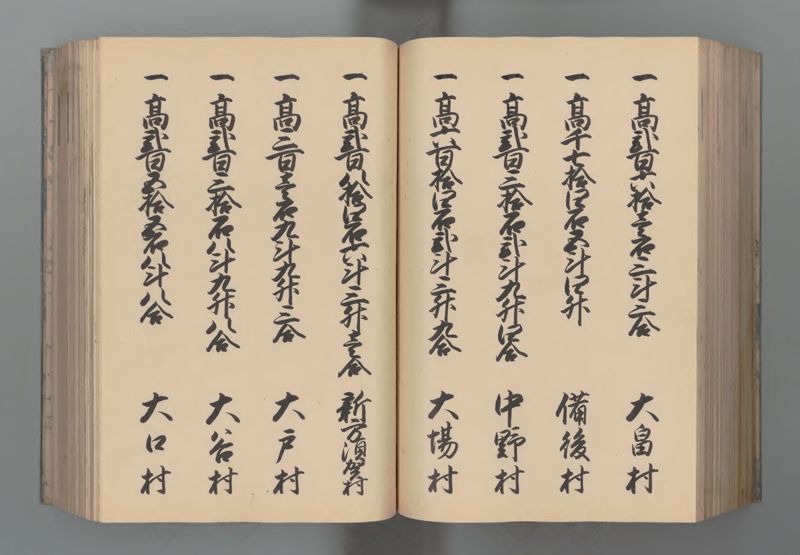 一 髙弐百六拾壱石三斗三合 大畠村
一 髙千七拾四石五斗四升 備後村
一 髙弐百三拾石弐斗九升四合 中野村
一 髙六百拾四石弐斗三升九合 大場村
一 髙弐百八拾四石六斗三升壱合 新方須賀村
一 髙三百壱石九斗九升三合 大戸村
一 髙弐百三拾石八斗九升八合 大谷村
一 髙弐百五拾五石八斗八合 大口村